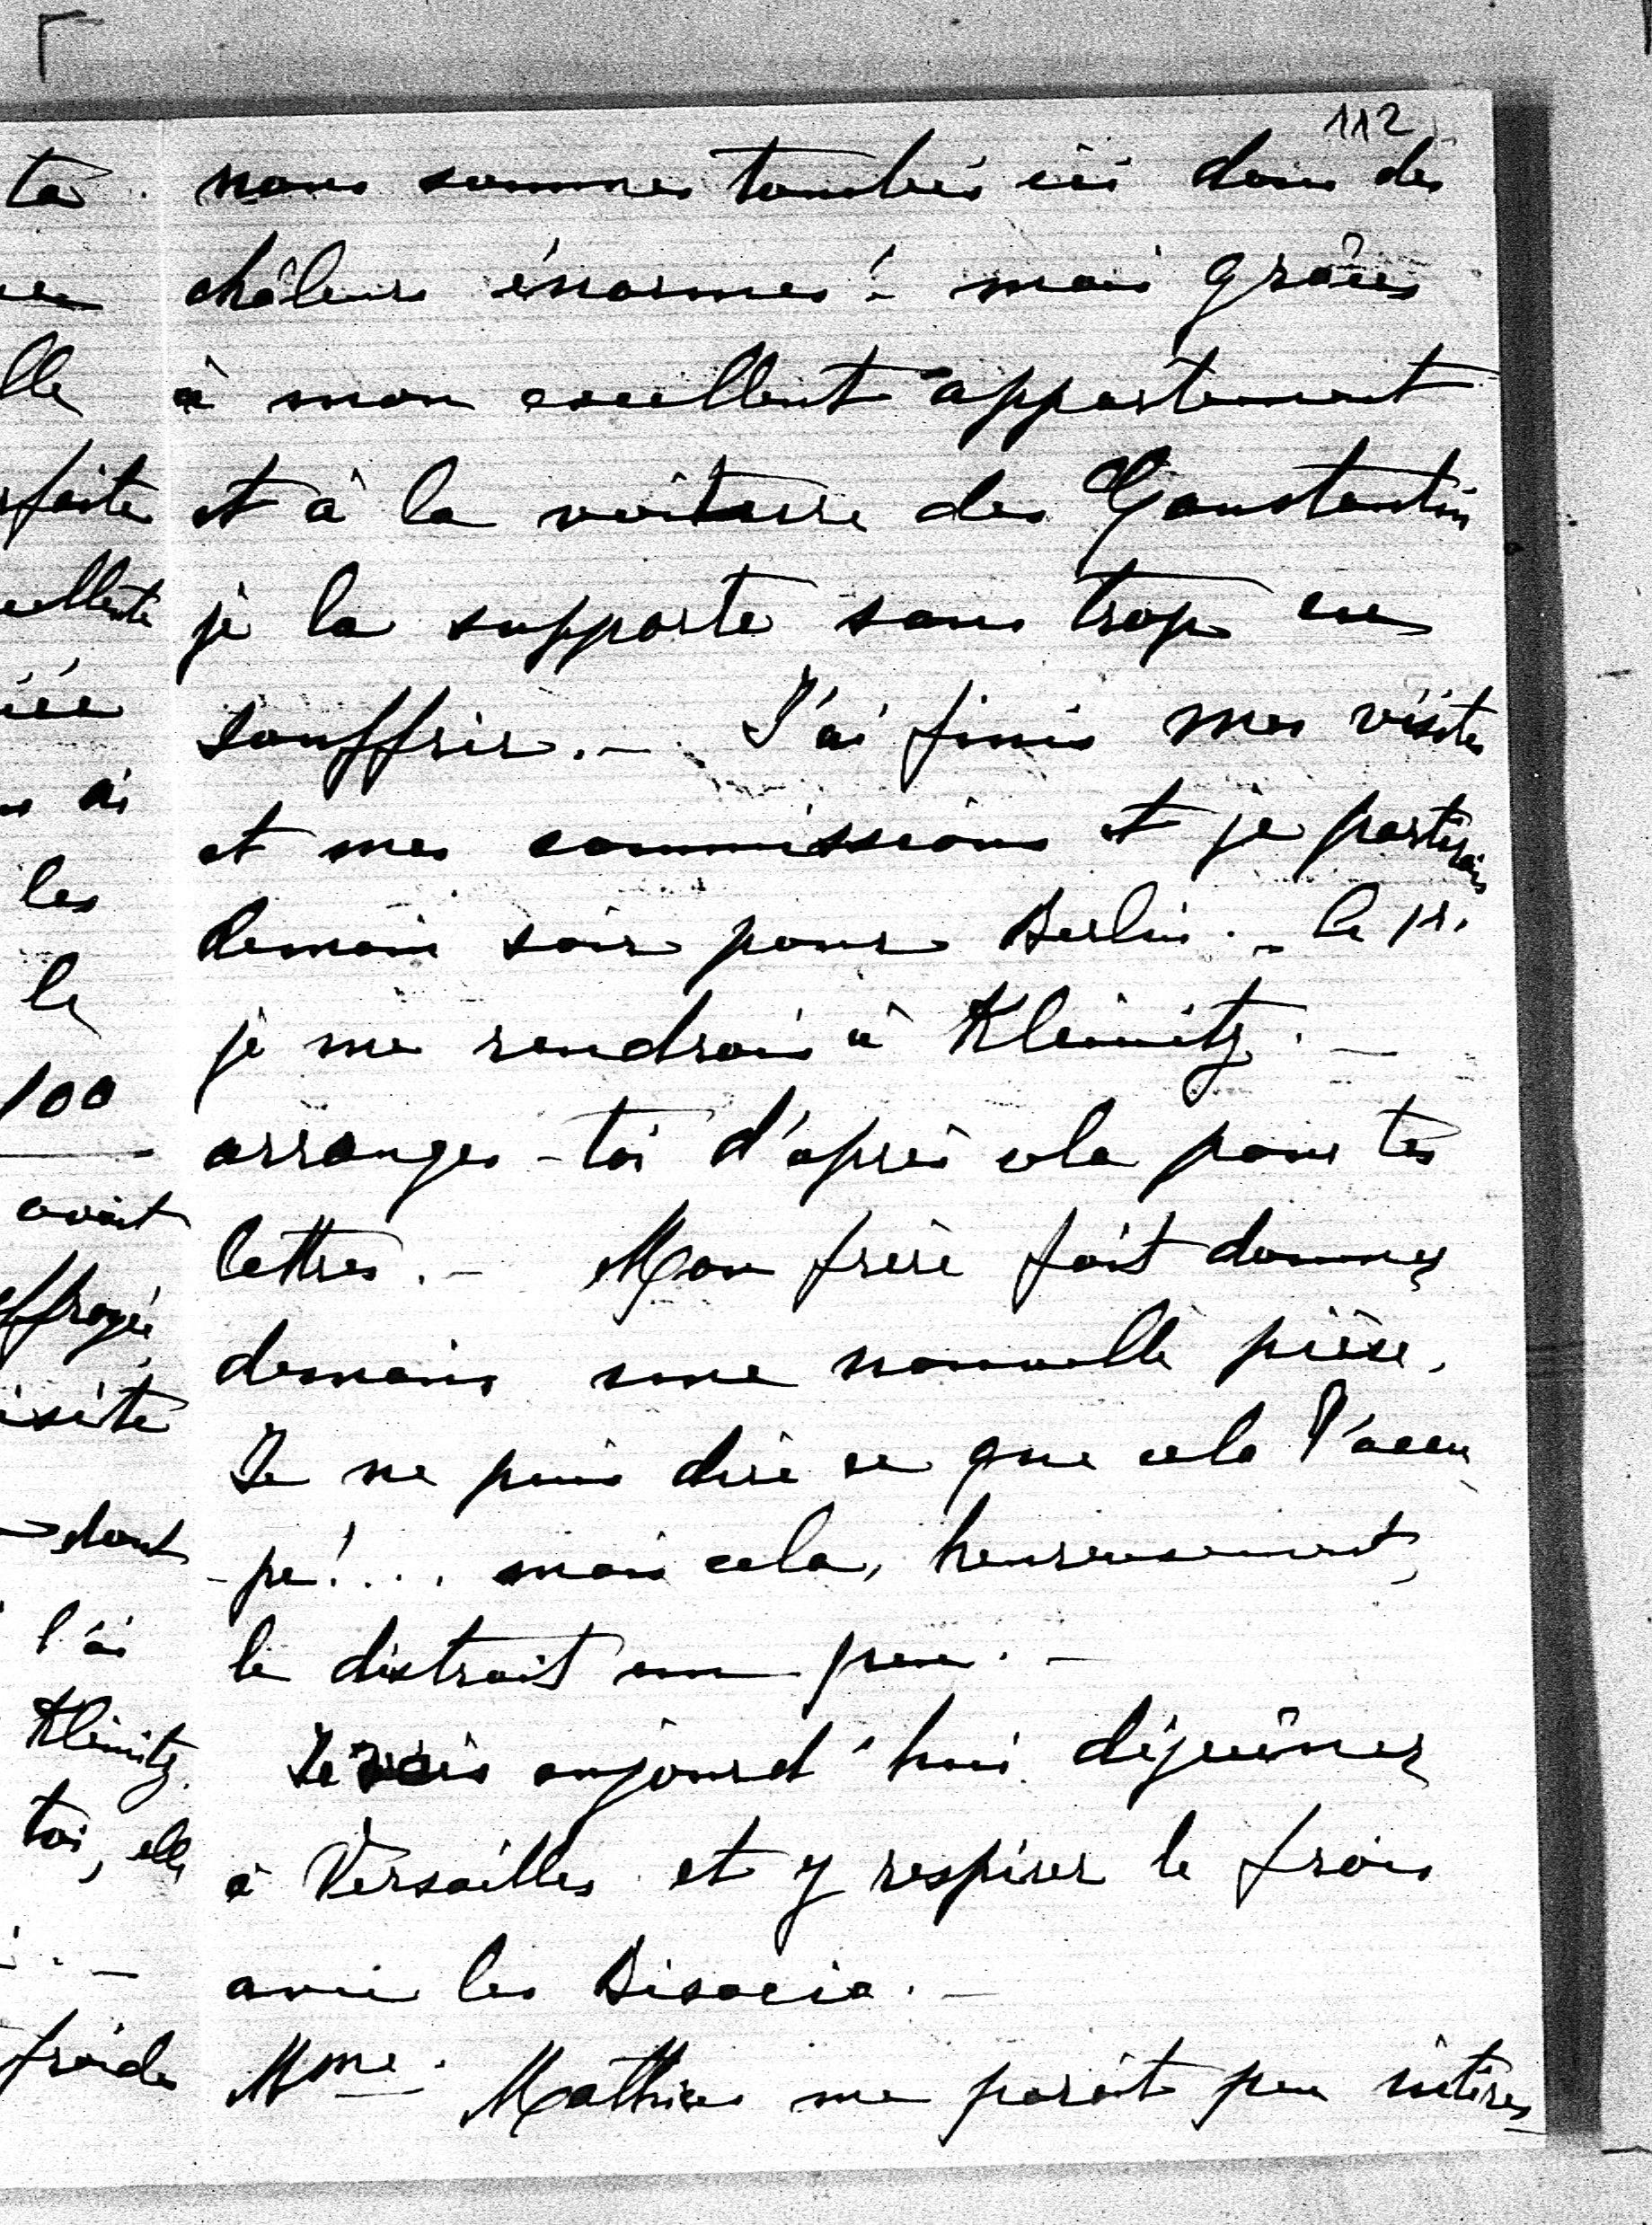 112
nous sommes tombés ici dans des
châleurs énormes! mais grâces
à mon excellent appartement
et à la voiture des Constantin
je la supporte sans trop en
souffrir. — J'ai finis mes visites
et mes commissions et je partirais
demain soir pour Berlin. — le 1r.
je me rendrais à Kleinitz. —
arranges-toi d'après cela pour tes
lettres. — Mon frère fait donner
demain une nouvelle pièce.
Je ne puis dire ce que cela l'accu
-pe!... mais cela, heureusement,
le distrait un peu. —
Je vais aujourd'hui déjeûner
à Versailles et y respirer le frais
avec les Bisaccia. —
Mme. Mathieu me parait peu intéres
ta
lle
faite
cellente
iée
ai
les
le
100
avait
effrayée
isite
dont
l'ai
Kleinitz.
toi, elle
froide